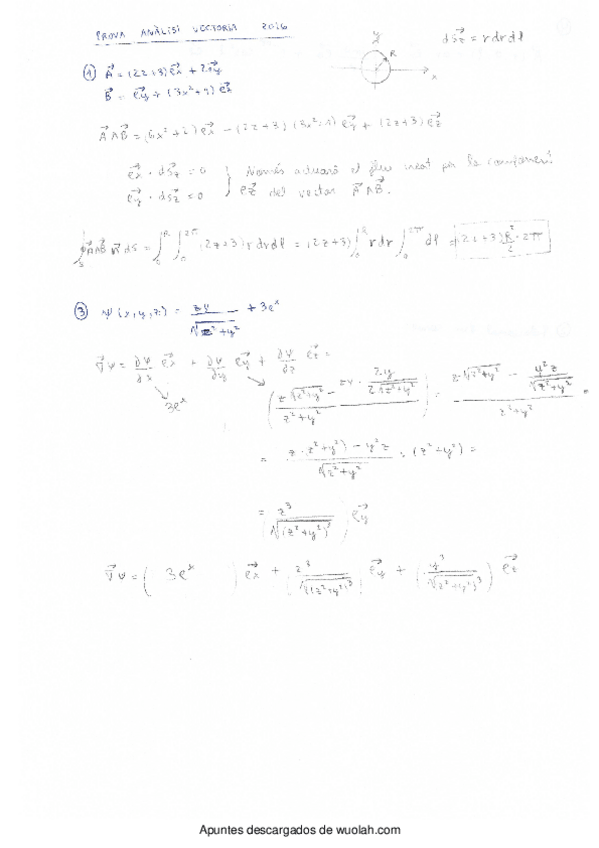 PROVA ANÀLISI VECTORIAL 2016
y
R
x
dS⃗z = r dr dl
① A⃗ = (2z+3) e⃗x + 2 e⃗y
B⃗ = e⃗y + (3x²+1) e⃗z
A⃗ ∧ B⃗ = (6x²+2) e⃗x − (2z+3)(3x²+1) e⃗y + (2z+3) e⃗z
e⃗x · dS⃗z = 0
e⃗y · dS⃗z = 0
Només actuarà el flux per la component
e⃗z del vector A⃗ ∧ B⃗.
∫s A⃗ ∧ B⃗ dS = ∫₀^R ∫₀^2π (2z+3) r dr dl = (2z+3) ∫₀^R r dr ∫₀^2π dl = (2z+3) R²/2 · 2π
③ Ψ(x, y, z) = zy / √(z²+y²) + 3e^x
∇⃗Ψ = ∂Ψ/∂x e⃗x + ∂Ψ/∂y e⃗y + ∂Ψ/∂z e⃗z =
3e^x
( z√(z²+y²) − zy · 2y / 2√(z²+y²) ) / (z²+y²) = ( z√(z²+y²) − y²z / √(z²+y²) ) / (z²+y²) =
= ( z·(z²+y²) − y²z ) / √(z²+y²) : (z²+y²) =
= ( z³ / √(z²+y²)³ ) e⃗y
∇⃗Ψ = ( 3e^x ) e⃗x + ( z³ / √(z²+y²)³ ) e⃗y + ( y³ / √(z²+y²)³ ) e⃗z
Apuntes descargados de wuolah.com